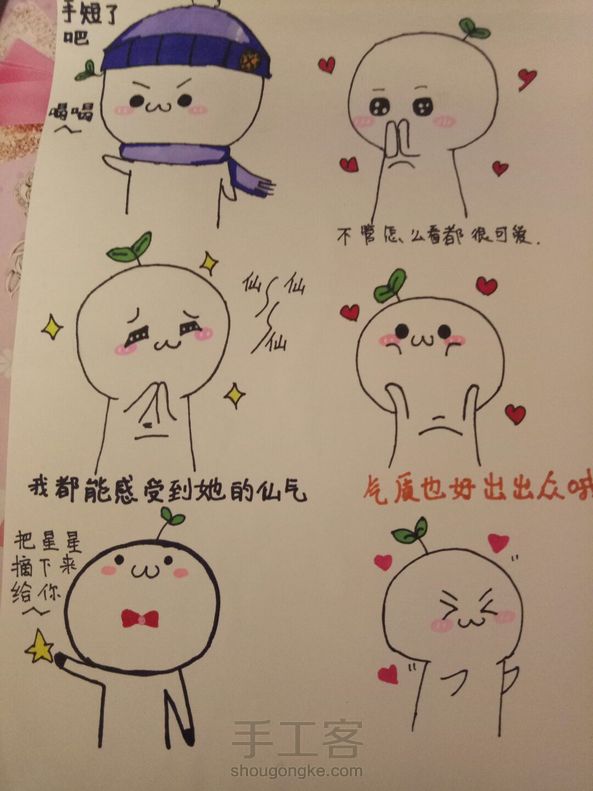 手短了
吧
喝喝
不管怎么看都很可爱.
仙仙
仙
我都能感受到她的仙气
气质也好出出众哦
把星星
摘下来
给你
手工客
shougongke.com